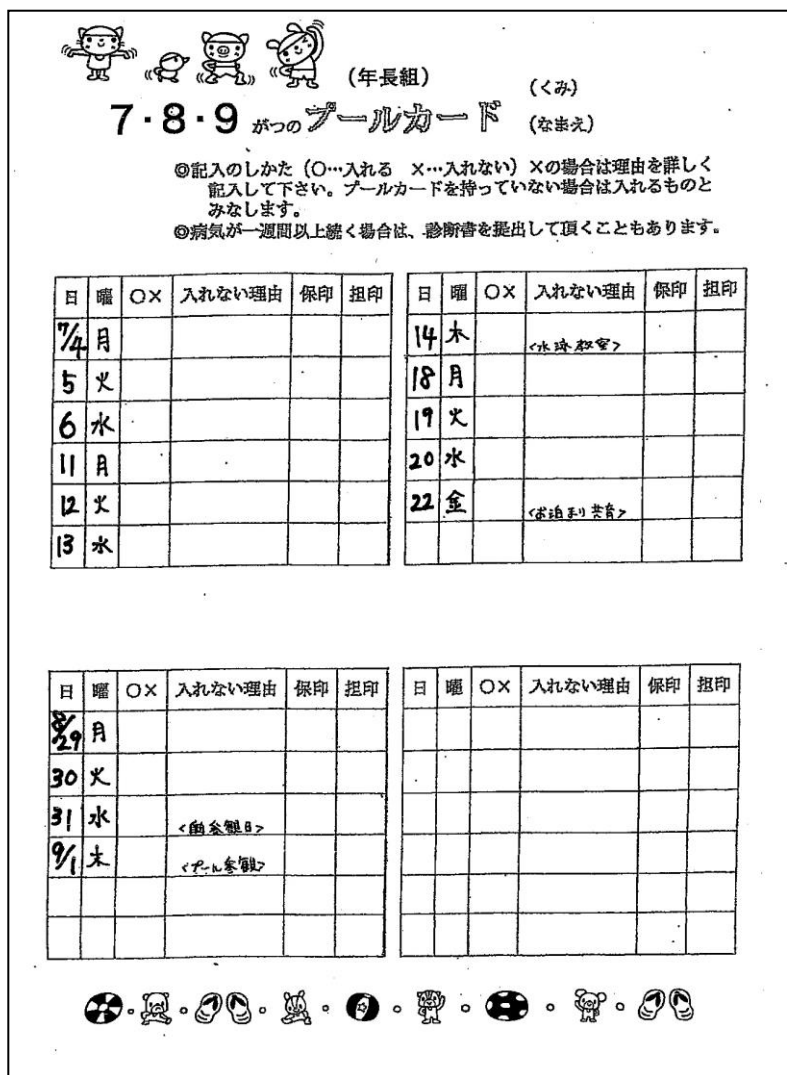 (年長組)
(くみ)
7・8・9 がつの プールカード
(なまえ)
◎記入のしかた（○…入れる ×…入れない）×の場合は理由を詳しく
記入して下さい。プールカードを持っていない場合は入れるものと
みなします。
◎病気が一週間以上続く場合は、診断書を提出して頂くこともあります。
日 曜 ○× 入れない理由 保印 担印
7/4 月
5 火
6 水
11 月
12 火
13 水
日 曜 ○× 入れない理由 保印 担印
14 木 <水泳教室>
18 月
19 火
20 水
22 金 <お泊まり共育>
日 曜 ○× 入れない理由 保印 担印
8/29 月
30 火
31 水 参観日>
9/1 木 <プール参観>
日 曜 ○× 入れない理由 保印 担印